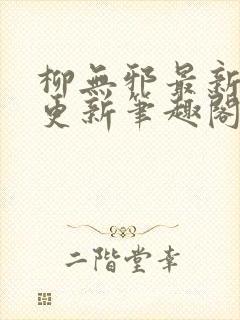 柳無邪最新
更新筆趣閣
二階堂幸